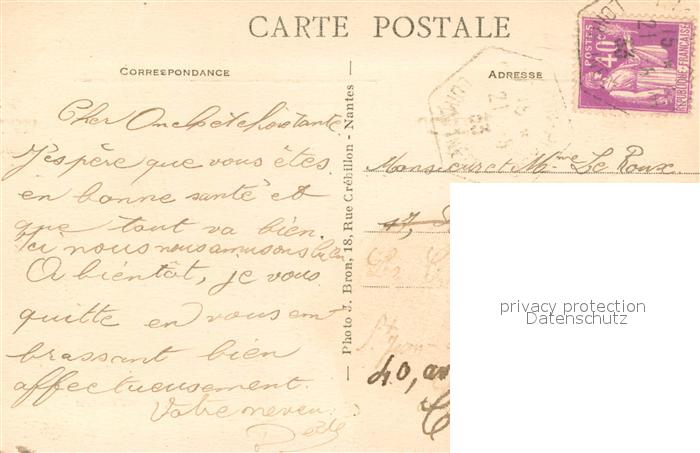 CARTE POSTALE
CORRESPONDANCE
Cher Oncle et chère tante
J'espère que vous êtes
en bonne santé et
que tout va bien.
Ici nous nous amusons bien
A bientôt, je vous
quitte en vous em-
brassant bien
affectueusement.
Votre neveu
Photo J. Bron, 18, Rue Crébillon - Nantes
ADRESSE
POSTES
40c
RÉPUBLIQUE FRANÇAISE
Monsieur et Mme Le Roux
47,
40, av
privacy protection
Datenschutz